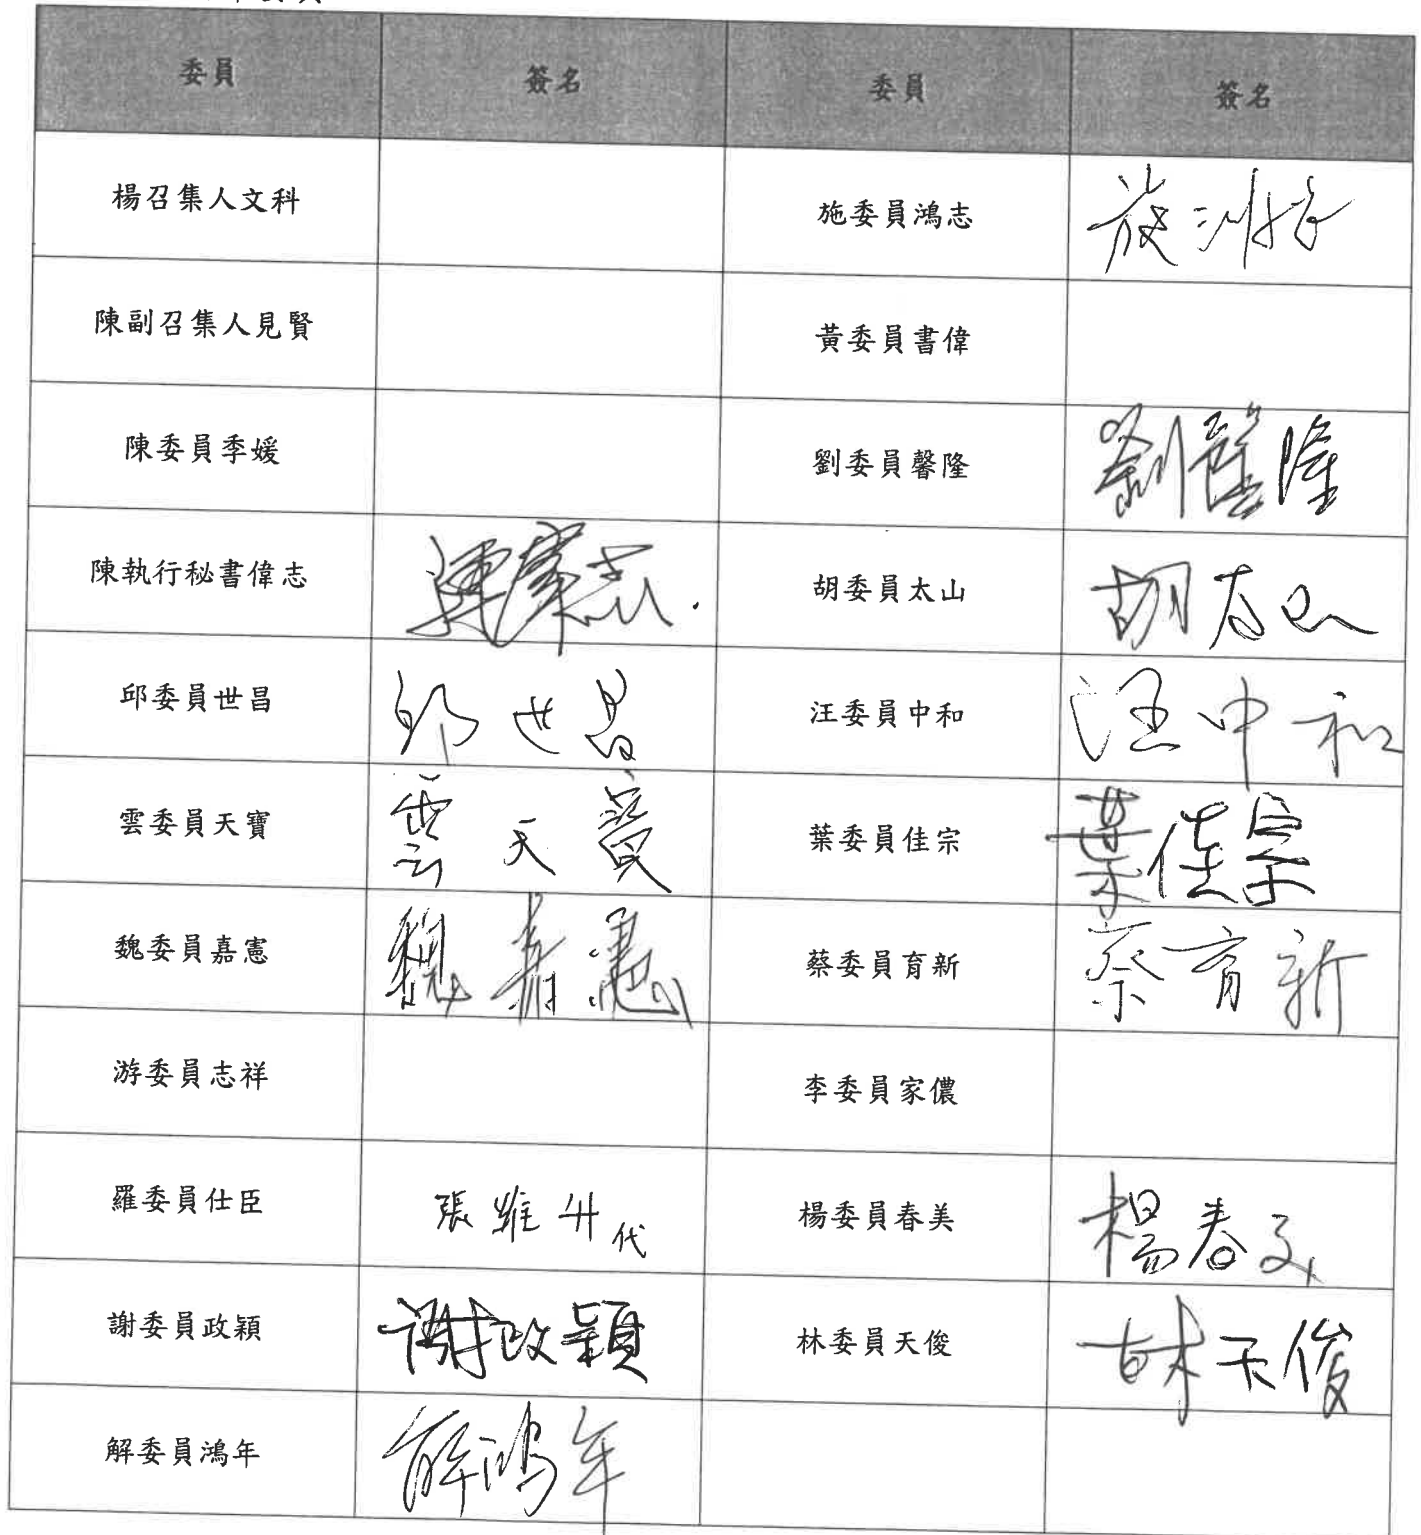 委員 簽名 委員 簽名
楊召集人文科 施委員鴻志 施鴻志
陳副召集人見賢 黃委員書偉
陳委員季媛 劉委員馨隆 劉馨隆
陳執行秘書偉志 陳偉志 胡委員太山 胡太山
邱委員世昌 邱世昌 汪委員中和 汪中和
雲委員天寶 雲天寶 葉委員佳宗 葉佳宗
魏委員嘉憲 魏嘉憲 蔡委員育新 蔡育新
游委員志祥 李委員家儂
羅委員仕臣 張維升代 楊委員春美 楊春美
謝委員政穎 謝政穎 林委員天俊 林天俊
解委員鴻年 解鴻年